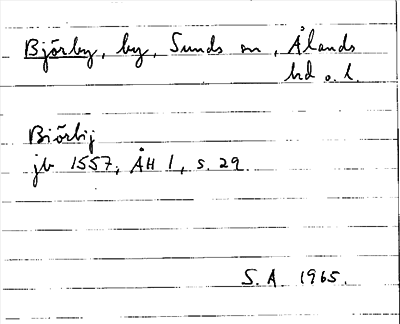 Björby, by, Sunds sn, Ålands
hd o. l.
Biörbij
jb 1557, ÅH 1, s. 29
S. A. 1965.